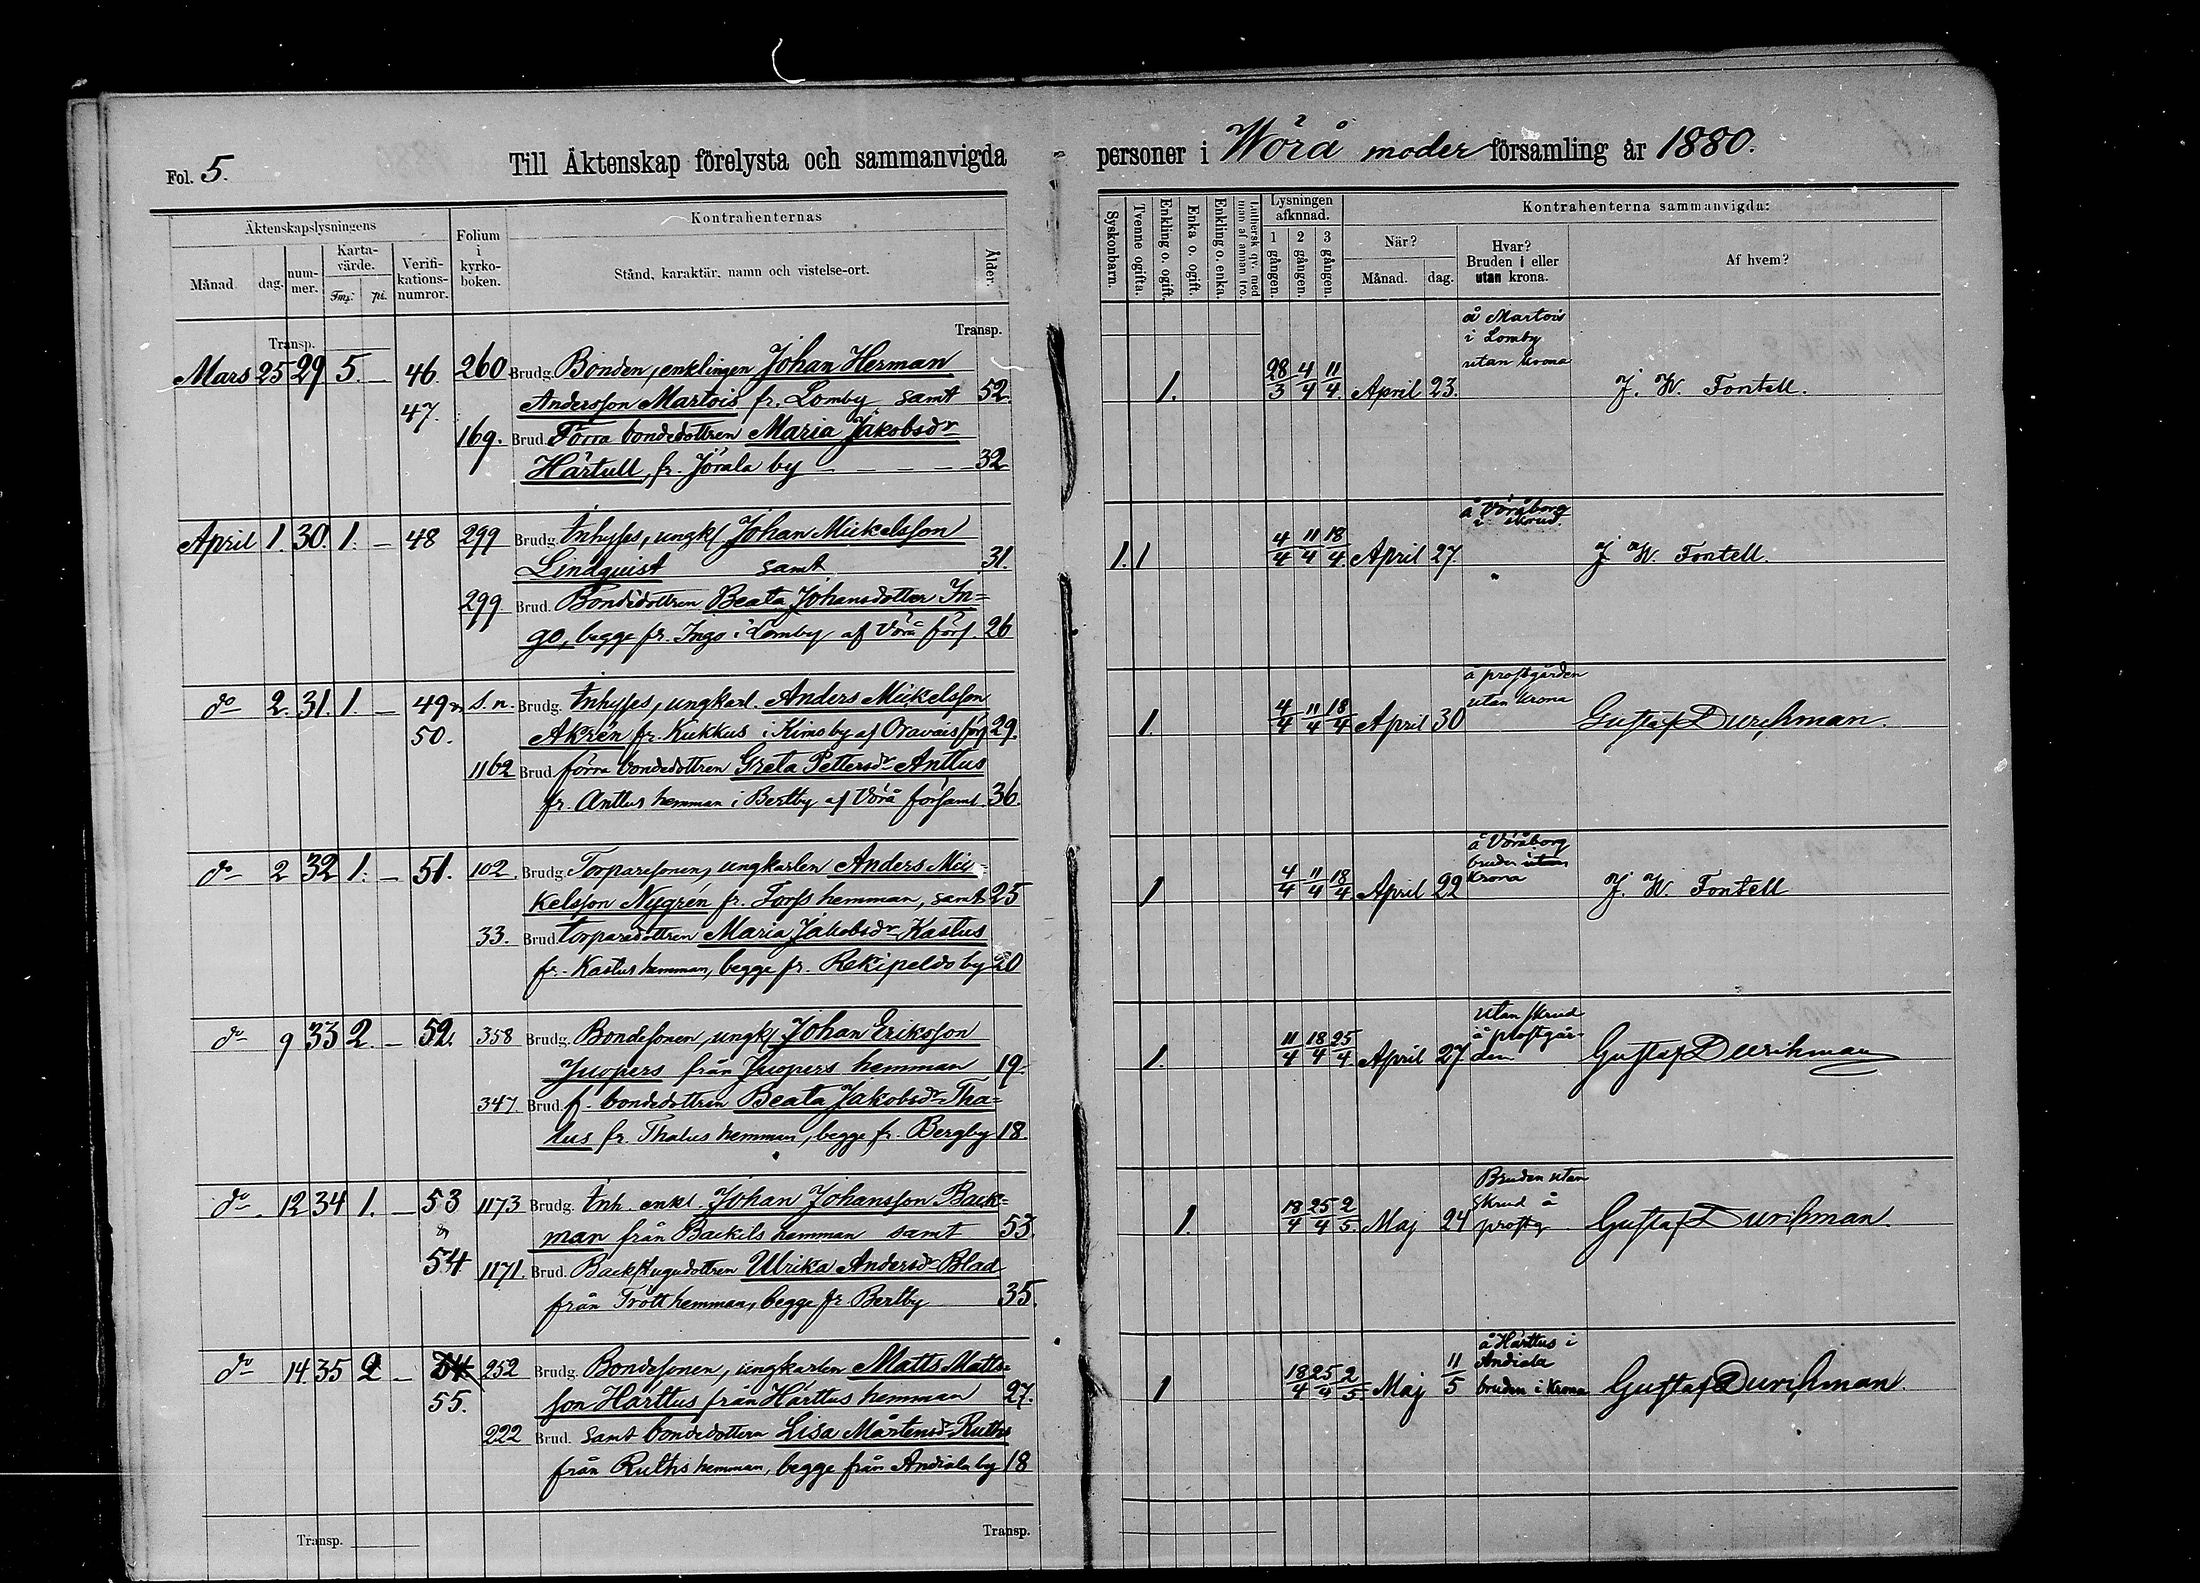 Fol. 5.
Till Äktenskap förelysta och sammanvigda personer i Wörå moder församling år 1880.
Äktenskapslysningens
Månad. dag. num-mer. Karta-värde. Fmk. pi. Verifi-kations-numror.
Folium i kyrko-boken.
Kontrahenternas
Stånd, karaktär, namn och vistelse-ort.
Ålder.
Syskonbarn. Tvenne ogifta. Enkling o. ogift. Enka o. ogift. Enkling o. enka.
Lysningen afknnad.
1 gången. 2 gången. 3 gången.
Kontrahenterna sammanvigda:
När? Månad. dag.
Hvar? Bruden i eller utan krona.
Af hvem?
Transp. Transp.
Mars 25 29 5. — 46. 260 Brudg. Bonden, enklingen Johan Herman
47. Andersson Martois fr. Lomby samt 52.
169. Brud. Förra bondedottren Maria Jakobsdr
Härtull, fr. Jörala by 32
1. 28/3 4/4 11/4. April 23. å Martois i Lomby utan krona J. W. Fontell.
April 1. 30. 1. — 48 299 Brudg. Inhyses, ungk. Johan Mickelsson
Lindquist samt 31.
299 Brud. Bondedottren Beata Johansdotter In=
go, begge fr. Ingo i Lomby af Vörå förs. 26
1. 1 4/4 11/4 18/4. April 27. å Vöråborg i skrud. J W. Fontell.
do 2. 31. 1. — 49 s.n. Brudg. Inhyses, ungkarl. Anders Mickelsson
50. Akrén fr. Kukkus i Kimo by af Oravais förs 29.
1162 Brud. förra bondedottren Greta Pettersdr Anttus
fr. Anttus hemman i Bertby af Vörå församl. 36.
1. 4/4 11/4 18/4 April 30 å prostgården utan krona Gustaf Durchman.
do 2 32 1. — 51. 102. Brudg. Torparesonen, ungkarlen Anders Mic-
kelsson Nygrén fr. Forss hemman, samt 25
33. Brud. torparedottren Maria Jakobsdr Kastus
fr. Kastus hemman, begge fr. Rekipeldo by 20
1 4/4 11/4 18/4. April 22 å Vöråborg bruden utan krona J. W. Fontell
do 9 33 2. — 52. 358 Brudg. Bondesonen, ungk. Johan Eriksson
Juopers från Juopers hemman 19.
347 Brud. f. bondedottren Beata Jakobsdr Tha=
lus fr. Thalus hemman, begge fr. Bergby 18.
1. 11/4 18/4 25/4. April 27. utan skrud å prostgår-den Gustaf Durchman
do 12 34 1. — 53 1173 Brudg. Inh. enkl. Johan Johansson Back=
man från Backils hemman samt 53.
54 1171. Brud. Backstugudottren Ulrika Andersdr Blad
från Trött hemman, begge fr Bertby 35.
1. 18/4 25/4 2/5 Maj 24 Bruden utan skrud å prostg. Gustaf Durchman
do 14. 35 2 — 54 252 Brudg. Bondesonen, ungkarlen Matts Matts=
55. son Härttus från Härttus hemman 27.
222 Brud. samt bondedottern Lisa Mårtensdr Ruths
från Ruths hemman, begge från Andiala by 18
1 18/4 25/4 2/5. Maj 11/5 å Härttus i Andiala bruden i krona Gustaf Durchman.
Transp. Transp.